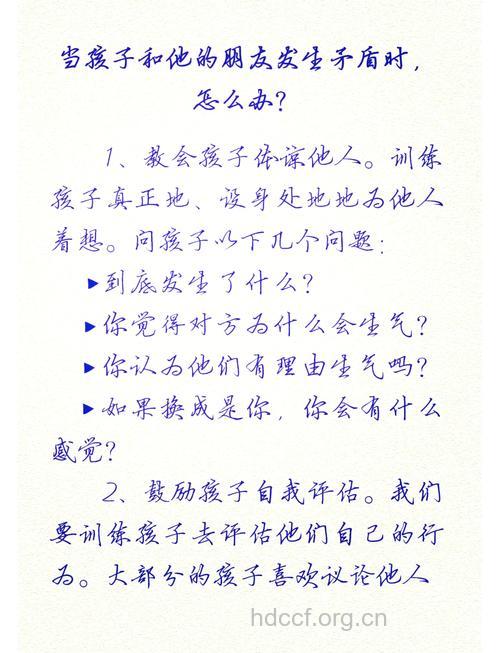 当孩子和他的朋友发生矛盾时，
怎么办？
1、教会孩子体谅他人。训练
孩子真正地、设身处地地为他人
着想。问孩子以下几个问题：
▸到底发生了什么？
▸你觉得对方为什么会生气？
▸你认为他们有理由生气吗？
▸如果换成是你，你会有什么
感觉？
2、鼓励孩子自我评估。我们
要训练孩子去评估他们自己的行
为。大部分的孩子喜欢议论他人
hdccf.org.cn